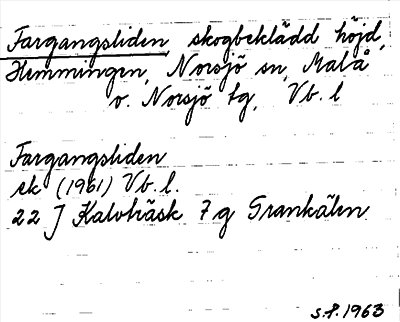 Fargangsliden, skogbeklädd höjd,
Hemmingen, Norsjö sn, Malå
o. Norsjö tg, Vb. l
Fargangsliden
ek (1961) Vb. l.
22 J Kalvträsk 7g Grankälen
s.f. 1963